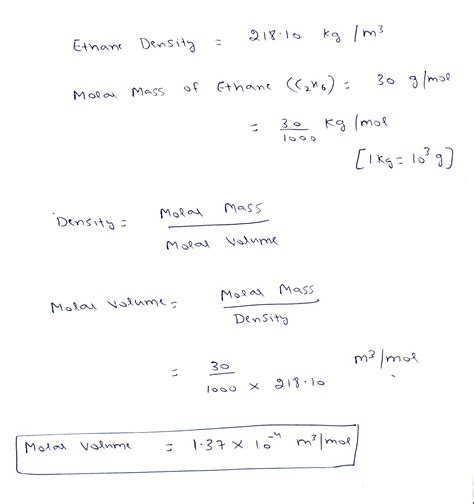 Ethane Density = 218.10 kg/m³
Molar Mass of Ethane (C₂H₆) = 30 g/mol
= 30/1000 kg/mol
[1kg = 10³ g]
Density = Molar Mass / Molar Volume
Molar Volume = Molar Mass / Density
= 30 / 1000 × 218.10 m³/mol
Molar Volume = 1.37 × 10⁻⁴ m³/mol